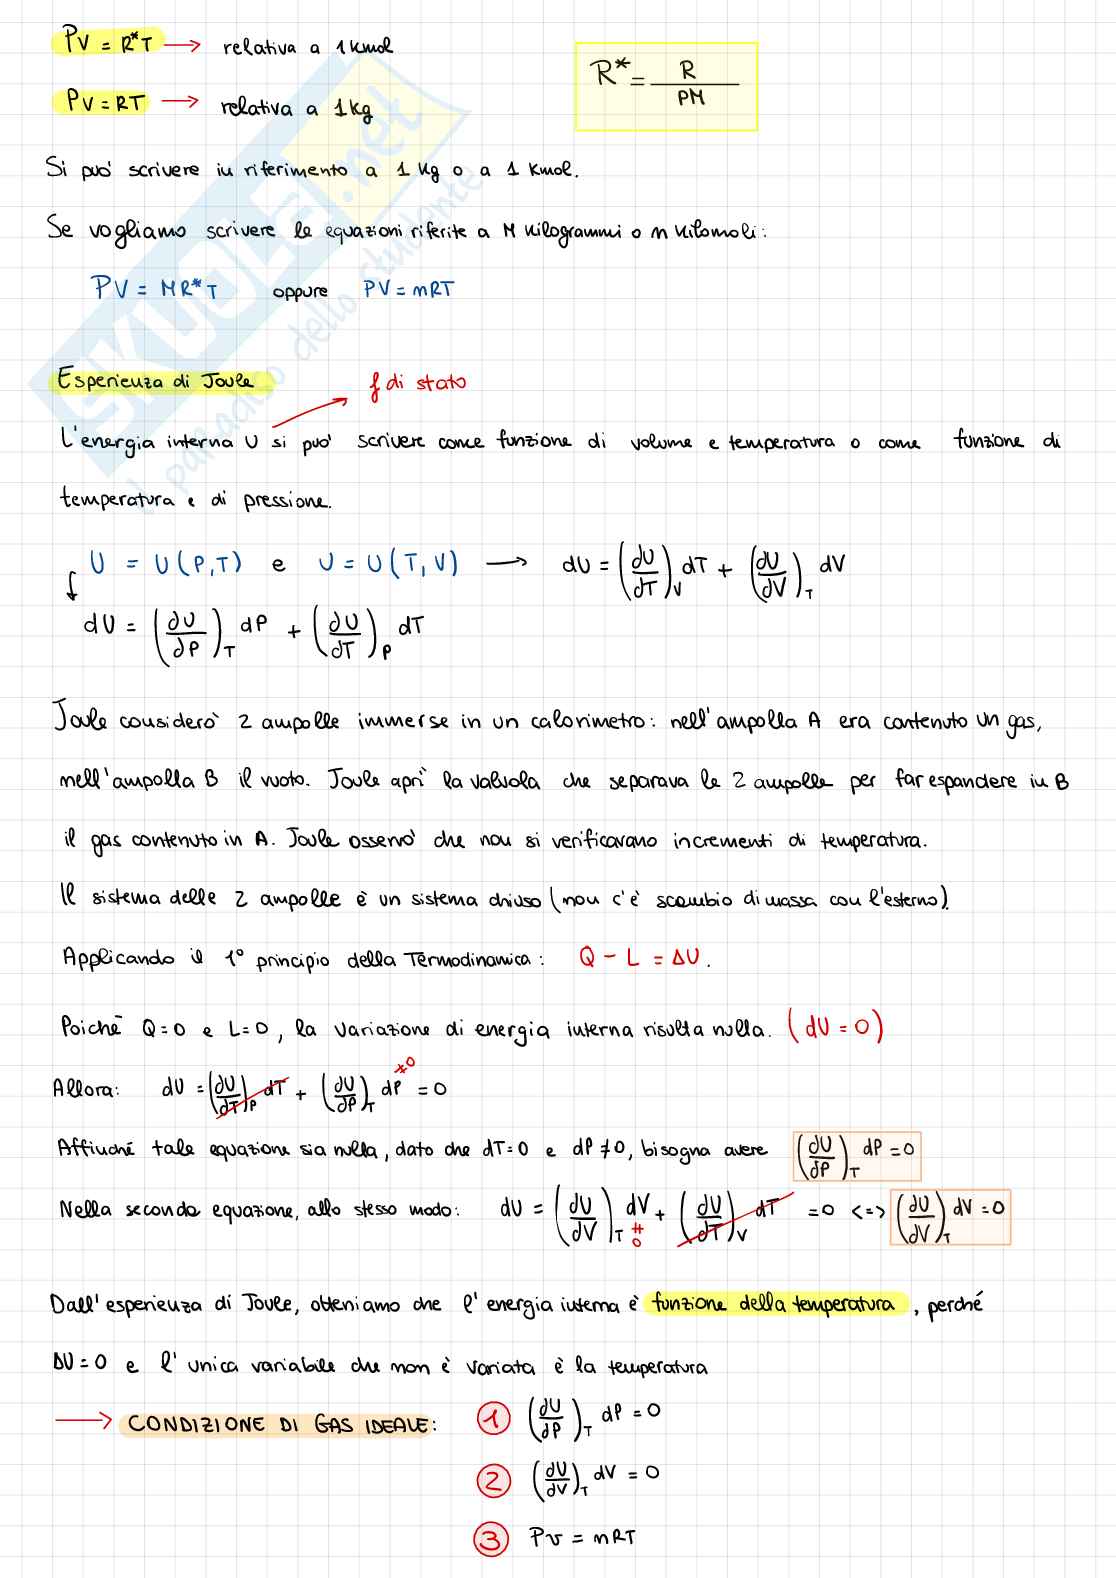 Pv = R*T → relativa a 1 Kmol
R* = R / PM
Pv = RT → relativa a 1 Kg
Si può scrivere in riferimento a 1 Kg o a 1 Kmol.
Se vogliamo scrivere le equazioni riferite a M Kilogrammi o n Kilomoli:
PV = MR*T oppure PV = nRT
Esperienza di Joule
f di stato
L'energia interna U si può scrivere come funzione di volume e temperatura o come funzione di
temperatura e di pressione.
U = U(P,T) e U = U(T,V) → dU = (∂U/∂T)_V dT + (∂U/∂V)_T dV
dU = (∂U/∂P)_T dP + (∂U/∂T)_P dT
Joule considerò 2 ampolle immerse in un calorimetro: nell'ampolla A era contenuto un gas,
nell'ampolla B il vuoto. Joule aprì la valvola che separava le 2 ampolle per far espandere in B
il gas contenuto in A. Joule osservò che non si verificavano incrementi di temperatura.
Il sistema delle 2 ampolle è un sistema chiuso (non c'è scambio di massa con l'esterno).
Applicando il 1° principio della Termodinamica: Q - L = ΔU.
Poichè Q=0 e L=0, la variazione di energia interna risulta nulla. (dU = 0)
Allora: dU = (∂U/∂T)_P dT + (∂U/∂P)_T dP ≠0 = 0
Affinché tale equazione sia nulla, dato che dT=0 e dP≠0, bisogna avere (∂U/∂P)_T dP = 0
Nella seconda equazione, allo stesso modo: dU = (∂U/∂V)_T dV ≠0 + (∂U/∂T)_V dT = 0 <=> (∂U/∂V)_T dV = 0
Dall'esperienza di Joule, otteniamo che l'energia interna è funzione della temperatura, perché
ΔU = 0 e l'unica variabile che non è variata è la temperatura
→ CONDIZIONE DI GAS IDEALE: 1 (∂U/∂P)_T dP = 0
2 (∂U/∂V)_T dV = 0
3 Pv = nRT
SKUOLA.net
il paradiso dello studente